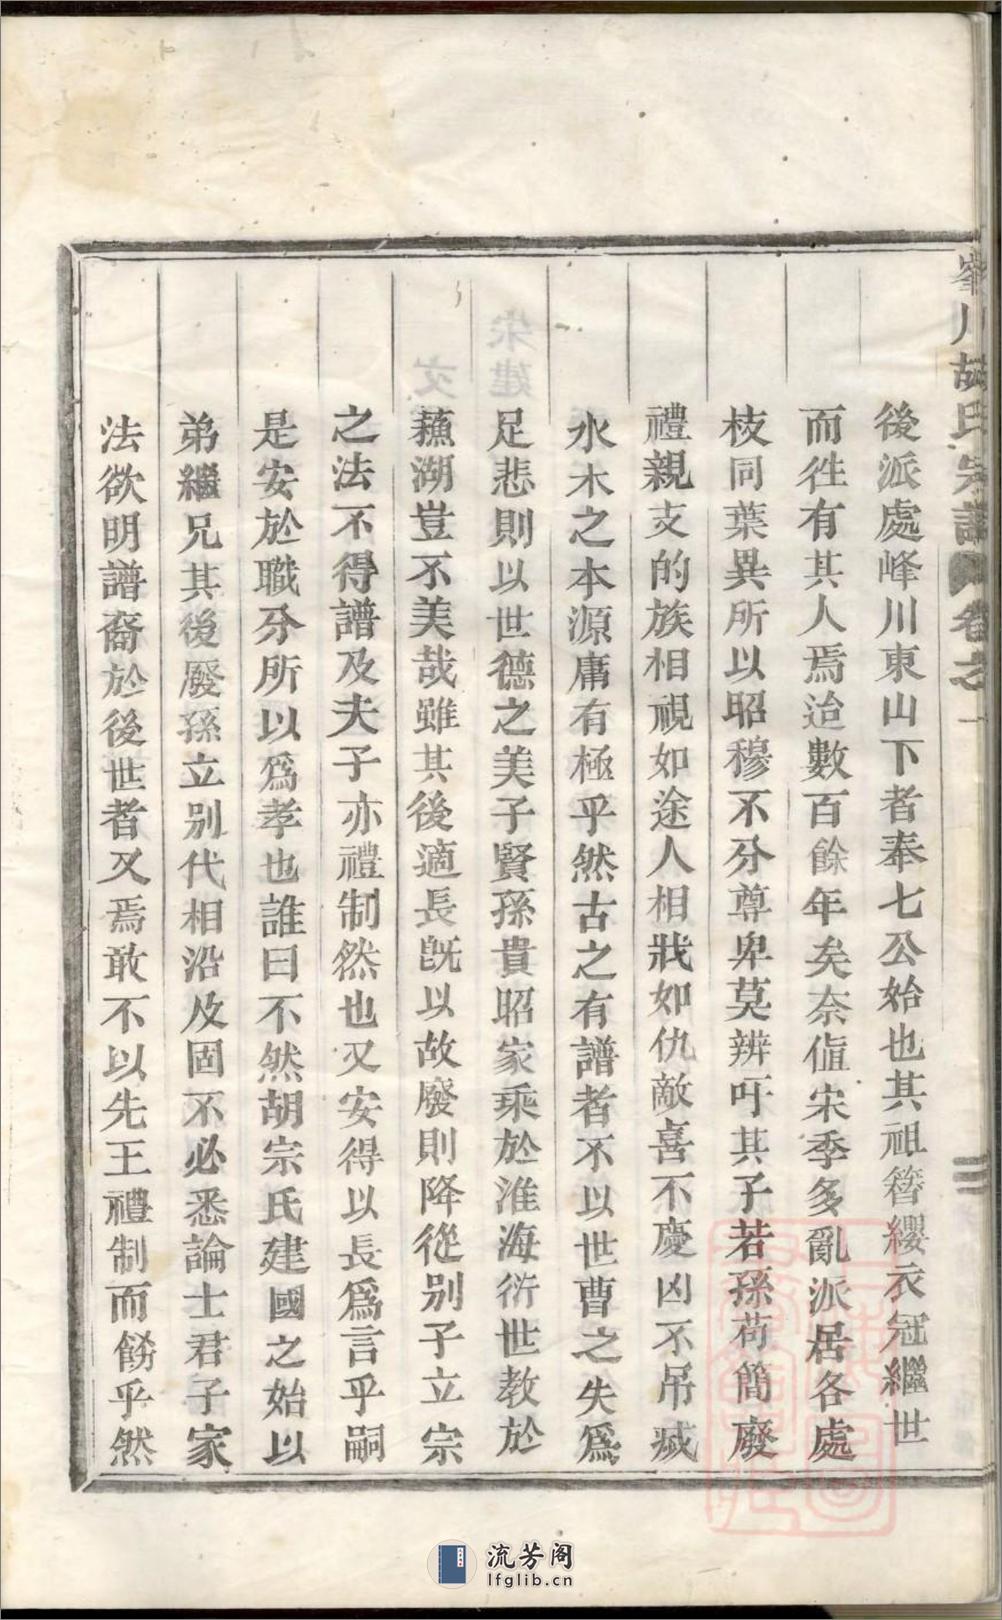 峯川胡氏宗譜 卷之一
後派處峰川東山下者奉七公始也其祖簪纓衣冠繼世
而徃有其人焉迨數百餘年矣奈值宋季多亂派居各處
枝同葉異所以昭穆不分尊卑莫辨吁其子若孫苟簡廢
禮親支的族相視如途人相戕如仇敵喜不慶凶不吊滅
水木之本源庸有極乎然古之有譜者不以世曹之失為
足悲則以世德之美子賢孫貴昭家乘於淮海衍世教於
蘓湖豈不美哉雖其後適長既以故廢則降從别子立宗
之法不得譜及夫子亦禮制然也又安得以長爲言乎嗣
是安於職分所以爲孝也誰曰不然胡宗氏建國之始以
弟繼兄其後廢孫立别代相沿及固不必悉論士君子家
法欲明譜裔於後世者又焉敢不以先王禮制而餝乎然
流芳阁
lfglib.cn